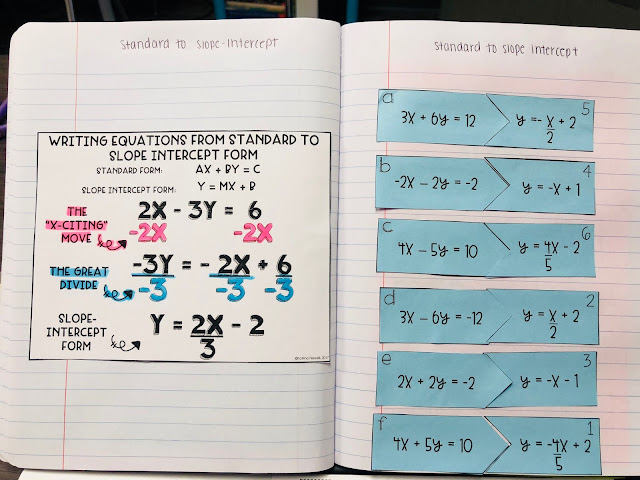 Standard to Slope-Intercept
WRITING EQUATIONS FROM STANDARD TO
SLOPE INTERCEPT FORM
STANDARD FORM: AX + BY = C
SLOPE INTERCEPT FORM: Y = MX + B
THE
"X-CITING"
MOVE
2X - 3Y = 6
-2X -2X
THE GREAT
DIVIDE
-3Y = - 2X + 6
-3 -3 -3
SLOPE-
INTERCEPT
FORM
Y = 2X - 2
3
Standard to Slope Intercept
a 5
3X + 6y = 12 y = - X + 2
2
b 4
-2X - 2y = -2 y = -X + 1
c 6
4X - 5y = 10 y = 4X - 2
5
d 2
3X - 6y = -12 y = X + 2
2
e 3
2X + 2y = -2 y = -X - 1
f 1
4X + 5y = 10 y = -4X + 2
5